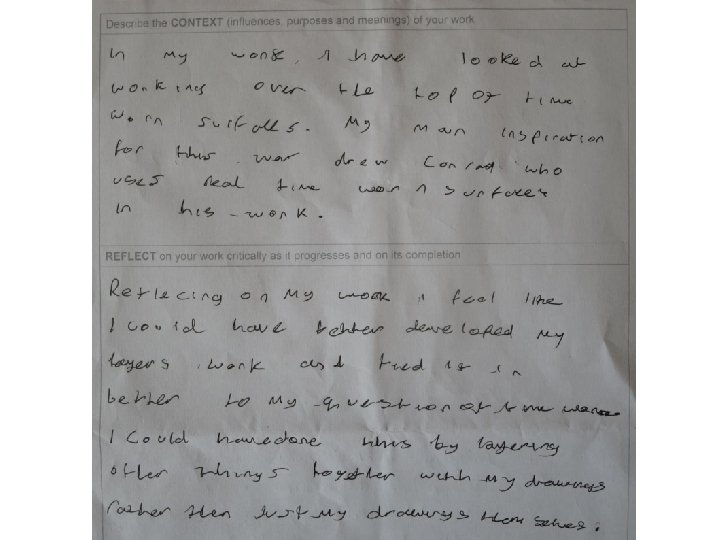 Describe the CONTEXT (influences, purposes and meanings) of your work
In my work, I have looked at
working over the top of time
worn surfaces. My main inspiration
for this was drew Conrad who
uses real time worn surfaces
in his work.
REFLECT on your work critically as it progresses and on its completion
Reflecing on my work I feel like
I could have better developed my
layers work and tied it in
better to my question of time
I could have done this by layering
other things together with my drawings
rather then just my drawings themselves.